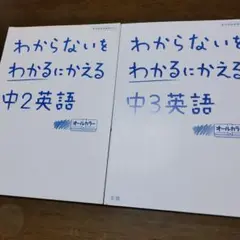 わからないを
わかるにかえる
中2英語
オールカラー
わからないを
わかるにかえる
中3英語
オールカラー
文理